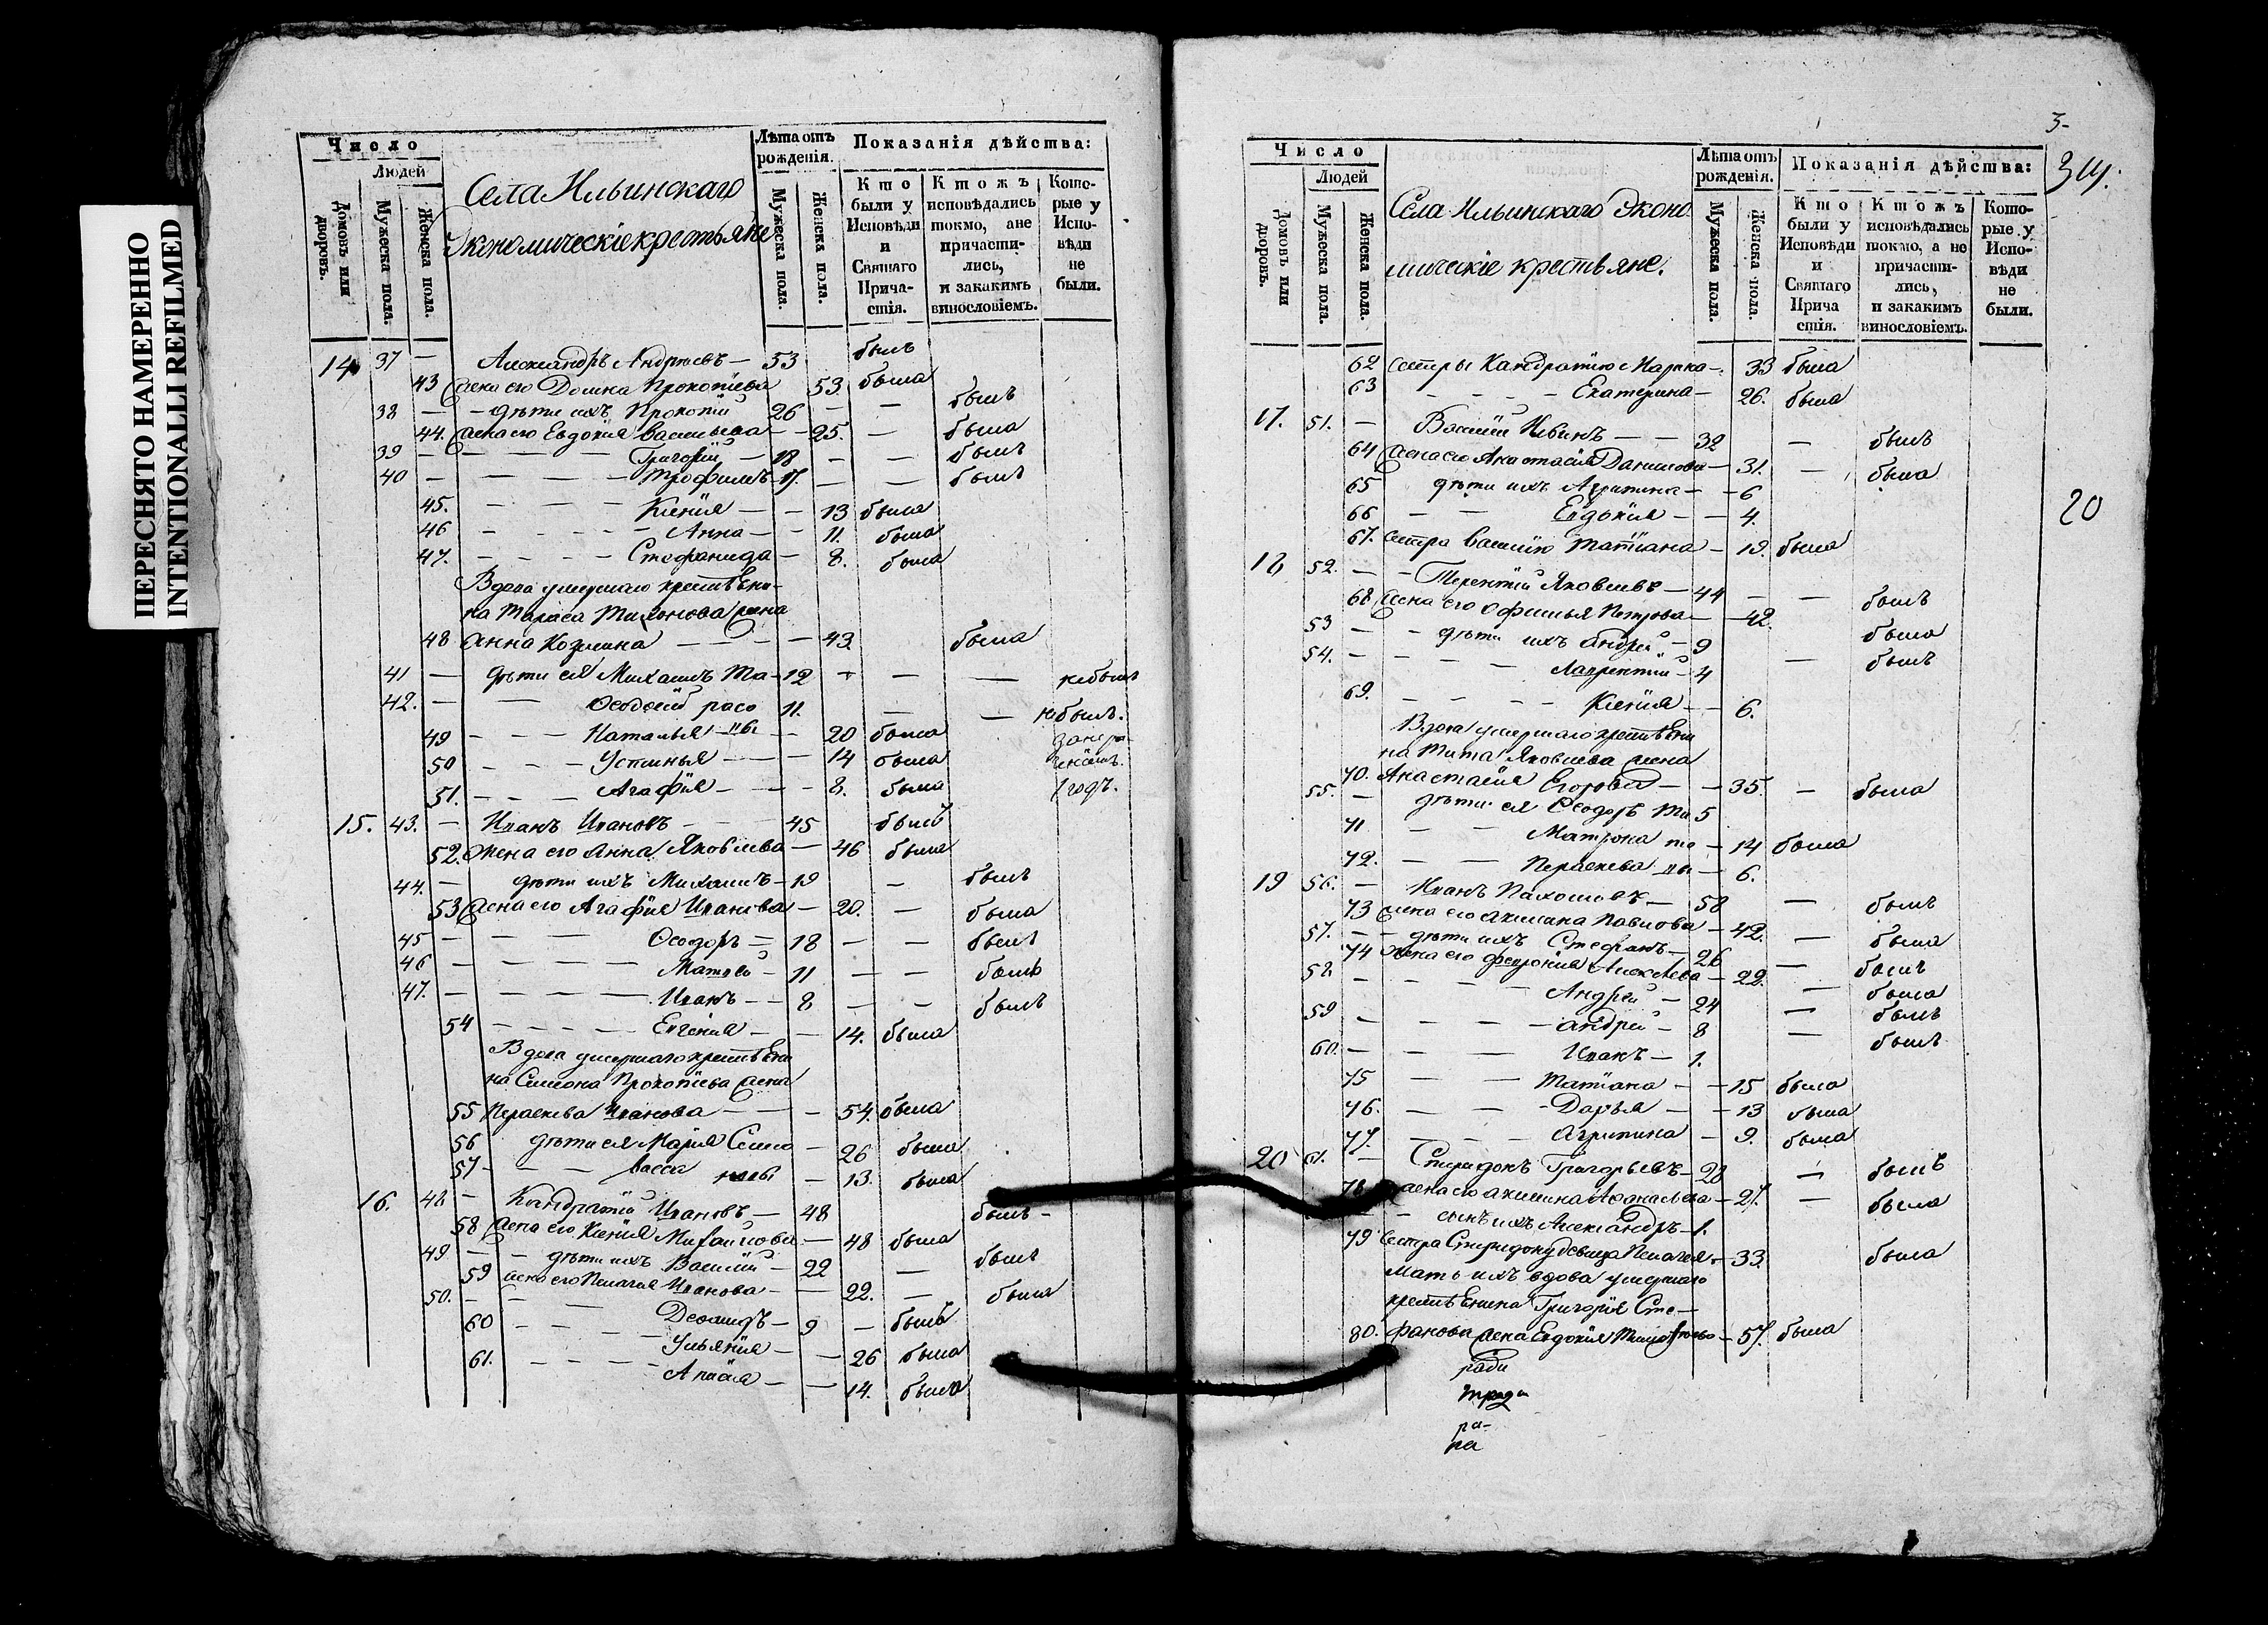 ПЕРЕСНЯТО НАМЕРЕННО
INTENTIONALLI REFILMED
Число
Людей
Домовъ или дворовъ.
Мужеска пола.
Женска пола.
Села Ильинскаго
Экономическіе крестьяне
Лѣта отъ рожденія.
Мужеска пола.
Женска пола.
Показанія дѣйства:
Кто были у Исповѣди и Святаго Прича-стія.
Ктожъ исповѣдались токмо, а не причасти-лись, и закакимъ винословіемъ.
Кото-рые у Испо-вѣди не были.
14 37 — Александръ Андреевъ — 53 былъ
43 жена его Домна Прокопіева 53. была
38 — — дѣти ихъ Прокопій 26 — — былъ
44. жена его Евдокія Васильева — — 25. — была
39 — — — — Григорій — 18 — — былъ
40 — — — — Трофимъ — 17. — — былъ
45. — — — Ксенія — — 13 была
46 — — — — Анна — — 11. была
47. — — — — Стефанида — 8. была
Вдова умершаго крестьяни-
на Тараса жена
48 Анна Козмина — — — — 43. была
41 — дѣти ея Михаилъ Та- 12 — — — небылъ
42. — — Ѳеодосій расо 11. — — небылъ.
49 — — — Наталья вы — 20 была
50 — — — Устинья — — — 14 была
51. — — — Агафія — — — 8. была
15. 43. — Иванъ Ивановъ — — — 45 былъ
52. Жена его Анна Яковлева — 46 была
44. — дѣти ихъ Михаилъ — 19 — былъ
53 жена его Агафія Иванова — 20. — была
45 — — — — Ѳеодоръ — 18 — — былъ
46 — — — — Матвѣй — 11 — — былъ
47. — — — — — Иванъ — — 8 — — былъ
54 — — — — — Евгенія — — 14. была
Вдова умершаго крестьяни
на Симона Прокопіева жена
55 Параскева Иванова — — — 54. была
56 дѣти ея Марія Симо — 26 была
57 — — Васса новы — 13. была
16. 48 — Кондратій Ивановъ — 48 былъ —
58 жена его Ксенія Михайлова — 48 была
49 — — дѣти ихъ Василій — 22 — былъ
59 жена его Пелагея Иванова — — 22. — была
50. — — — 9 — былъ
60 — — — — Ульянія — — 26 была
61. — — — — — — 14. была
3-
20
Число
Людей
Домовъ или дворовъ.
Мужеска пола.
Женска пола.
Села Ильинскаго Эконо
мическіе крестьяне.
Лѣта отъ рожденія.
Мужеска пола.
Женска пола.
Показанія дѣйства:
Кто были у Исповѣди и Святаго Прича стія.
Ктожъ исповѣдались токмо, а не причасти-лись, и закакимъ винословіемъ.
Кото-рые у Испо-вѣди не были.
62 сестры Кандратію — 33 была
63 — — — — Екатерина — 26. была
17. 51. — Василій — — 32 — былъ
64 жена его Анастасія Данилова — 31. — была
65 дѣти ихъ Агрипина — — 6
66 — — Евдокія — — 4.
67. сестра Василію Татіана — 19. была
18 52. — — Терентій Яковлевъ — 44 — — былъ
68 жена его Офимья Петрова — — 42. была
53 — — дѣти ихъ Андрей — 9 — былъ
54. — — — — Лаврентій — 4
69. — — — — Ксенія — — 6.
Вдова умершаго крестьяни
на Тита Яковлева жена
70. Анастасія Егорова — — 35. — была
55. — дѣти ея Ѳеодоръ Ти 5
71 — — Матрона то — 14 была
72. — — Параскева вы — 6.
19 56. — Иванъ Пахомовъ — 58 — былъ
73 жена его Акилина Павлова — 42. — была
57. — — дѣти ихъ Стефанъ — 26 — былъ
74 жена его Феврониа Алексѣева — 22. — была
58 — — — — Андрей — 24 — былъ
59 — — — — Андрей — 8 — былъ
60. — — — — Иванъ — 1.
75 — — Татіана — — 15 была
76. — — — Дарья — — 13 была
77. — — — Агрипина — 9. была
20 61. — Спиридонъ Григорьевъ — 28 — былъ
78 жена его Акилина Аѳанасьева — 27. — была
— — сынъ ихъ Александръ — 1.
79 Сестра Спиридону девица Пелагея — 33. была
Мать ихъ вдова умершаго
крестьянина Григорія Сте-
80. фанова жена Евдокія — 57. была
ради
ра-
ра